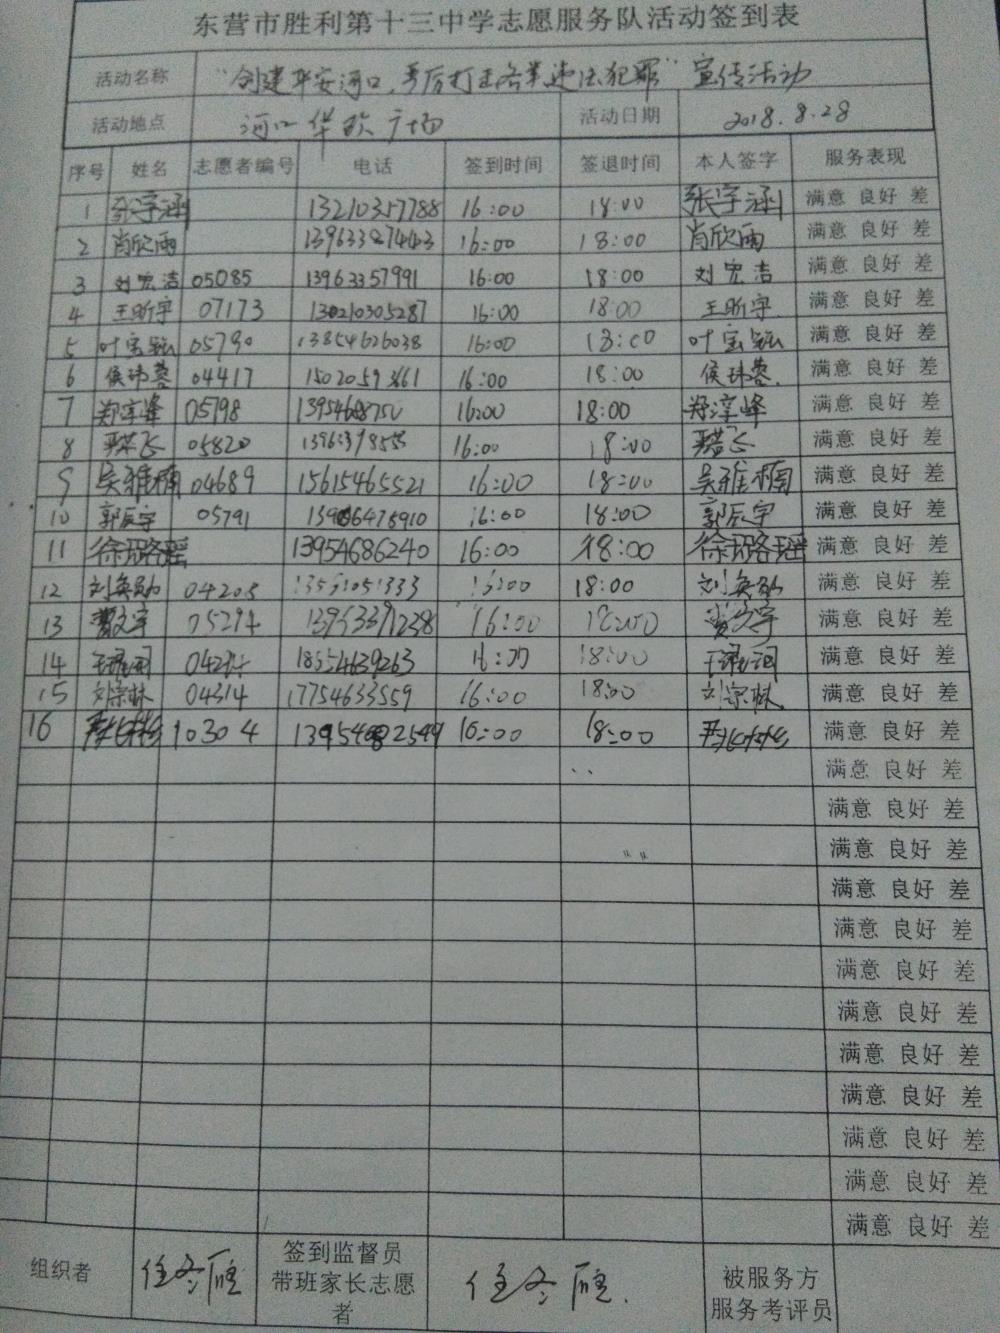 东营市胜利第十三中学志愿服务队活动签到表
活动名称 “创建平安河口,严厉打击各类违法犯罪”宣传活动
活动地点 河口华欧广场 活动日期 2018.8.28
序号 姓名 志愿者编号 电话 签到时间 签退时间 本人签字 服务表现
1 张宇涵 13210357788 16:00 18:00 张宇涵 满意 良好 差
2 肖欣雨 16:00 18:00 肖欣雨 满意 良好 差
3 刘宏洁 05085 13963357991 16:00 18:00 刘宏洁 满意 良好 差
4 王昕宇 07173 16:00 18:00 王昕宇 满意 良好 差
5 05790 13854626038 16:00 18:00 满意 良好 差
6 侯玮蓉 04417 16:00 18:00 侯玮蓉 满意 良好 差
7 郑淳峰 05798 16:00 18:00 郑淳峰 满意 良好 差
8 05820 16:00 18:00 满意 良好 差
9 吴雅楠 04689 15615465521 16:00 18:00 吴雅楠 满意 良好 差
10 郭辰宇 05791 16:00 18:00 郭辰宇 满意 良好 差
11 徐璐瑶 13954686240 16:00 18:00 徐璐瑶 满意 良好 差
12 18:00 满意 良好 差
13 05294 16:00 满意 良好 差
14 18554639263 18:00 满意 良好 差
15 刘宗林 04314 17754633559 16:00 18:00 刘宗林 满意 良好 差
16 10304 16:00 18:00 满意 良好 差
满意 良好 差
满意 良好 差
满意 良好 差
满意 良好 差
满意 良好 差
满意 良好 差
满意 良好 差
满意 良好 差
满意 良好 差
满意 良好 差
满意 良好 差
满意 良好 差
组织者 任冬雁 签到监督员 任冬雁. 被服务方
带班家长志愿 服务考评员
者